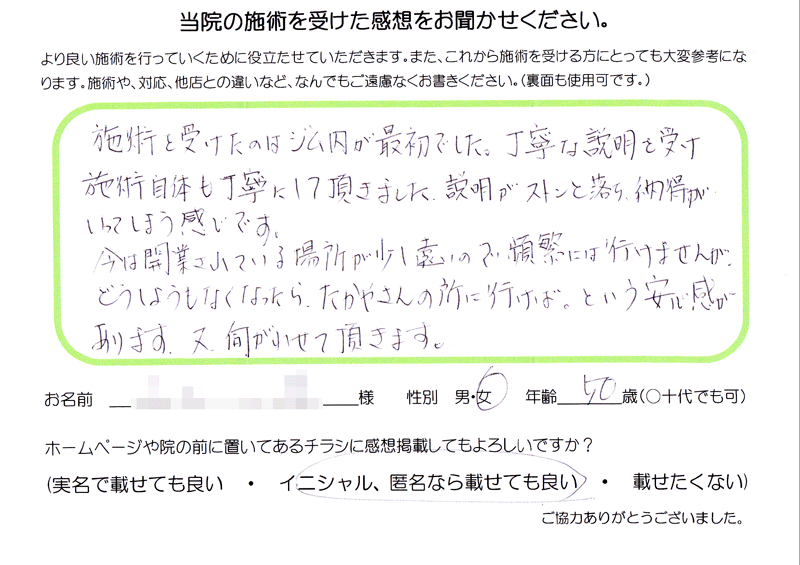 当院の施術を受けた感想をお聞かせください。
より良い施術を行っていくために役立たせていただきます。また、これから施術を受ける方にとっても大変参考にな
ります。施術や、対応、他店との違いなど、なんでもご遠慮なくお書きください。（裏面も使用可です。）
施術を受けたのはジム内が最初でした。丁寧な説明を受け
施術自体も丁寧にして頂きました、説明がストンと落ち、納得が
いってしまう感じです。
今は開業されている場所が少し遠いので、頻繁には行けませんが、
どうしようもなくなったら、たかやさんの所に行けば。という安心感が
あります、又、伺がわせて頂きます。
お名前 様 性別 男・女 年齢 50 歳（○十代でも可）
ホームページや院の前に置いてあるチラシに感想掲載してもよろしいですか？
(実名で載せても良い ・ イニシャル、匿名なら載せても良い ・ 載せたくない)
ご協力ありがとうございました。